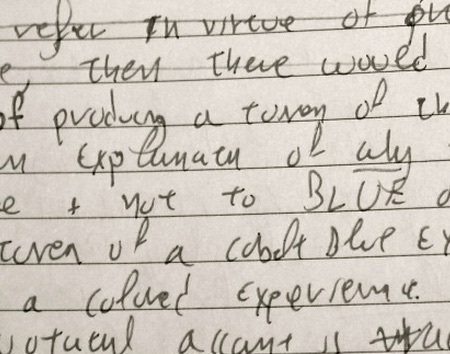 refer in virtue of
e, then there would
of producing a token of th
n explanation of why
e + not to BLUE
token of a cobalt blue ex
a colored experience.
account is